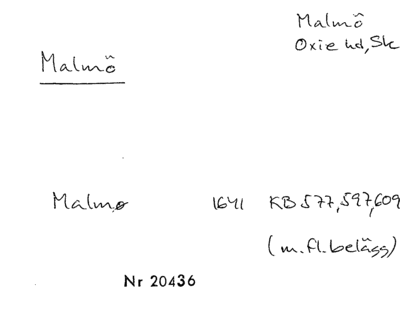 Malmö
Oxie hd, Sk
Malmö
Malmo 1641 KB 577, 597, 609
(m.fl. belägg)
Nr 20436